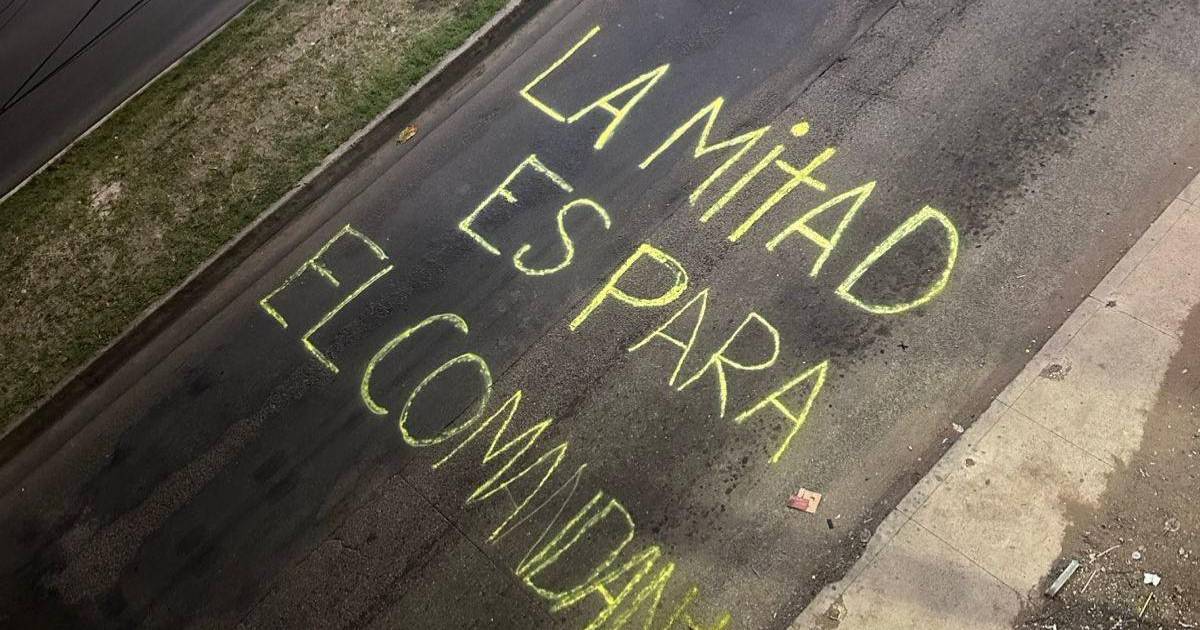 LA MitAD
ES PARA
EL COMANDAN